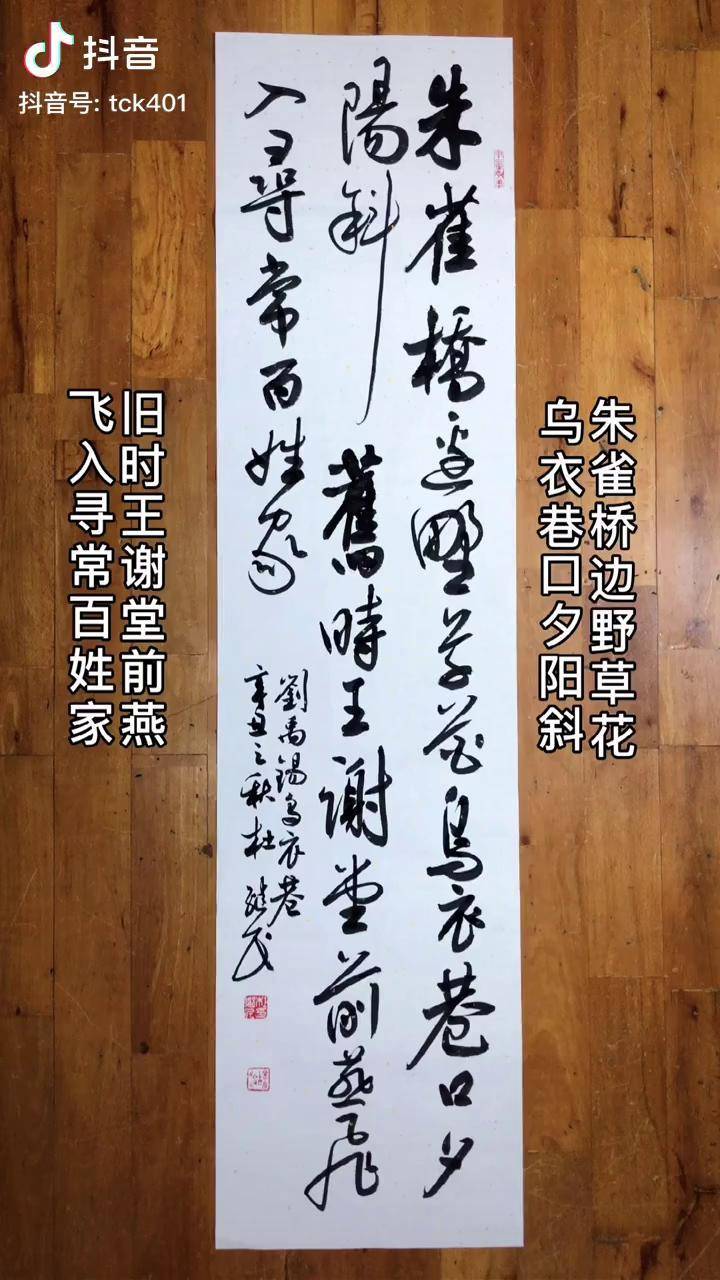 抖音
抖音号: tck401
朱雀橋邊野草花烏衣巷口夕
陽斜舊時王謝堂前燕飛
入尋常百姓家
劉禹錫烏衣巷
辛丑之秋杜
朱雀桥边野草花
乌衣巷口夕阳斜
旧时王谢堂前燕
飞入寻常百姓家